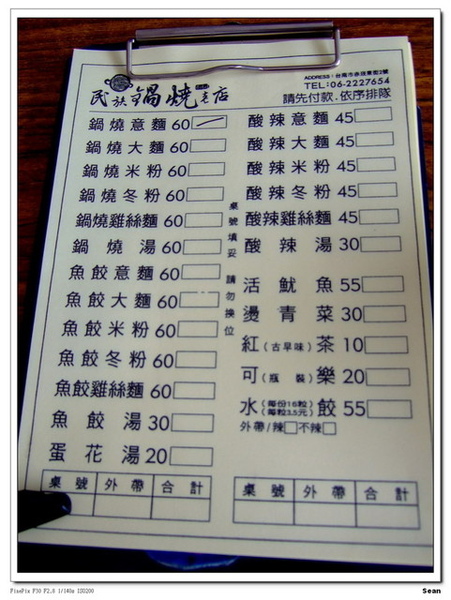 民族鍋燒老店
ADDRESS:台南市赤崁東街2號
TEL:06-2227654
請先付款.依序排隊
鍋燒意麵60
鍋燒大麵60
鍋燒米粉60
鍋燒冬粉60
鍋燒雞絲麵60
鍋燒湯60
魚餃意麵60
魚餃大麵60
魚餃米粉60
魚餃冬粉60
魚餃雞絲麵60
魚餃湯30
蛋花湯20
桌號填妥 請勿換位
酸辣意麵45
酸辣大麵45
酸辣米粉45
酸辣冬粉45
酸辣雞絲麵45
酸辣湯30
活魷魚55
燙青菜30
紅(古早味)茶10
可(瓶裝)樂20
水(每份16粒 每粒3.5元)餃55
外帶/辣 不辣
桌號 外帶 合計
桌號 外帶 合計
FinePix F30 F2.8 1/140s ISO200
Sean